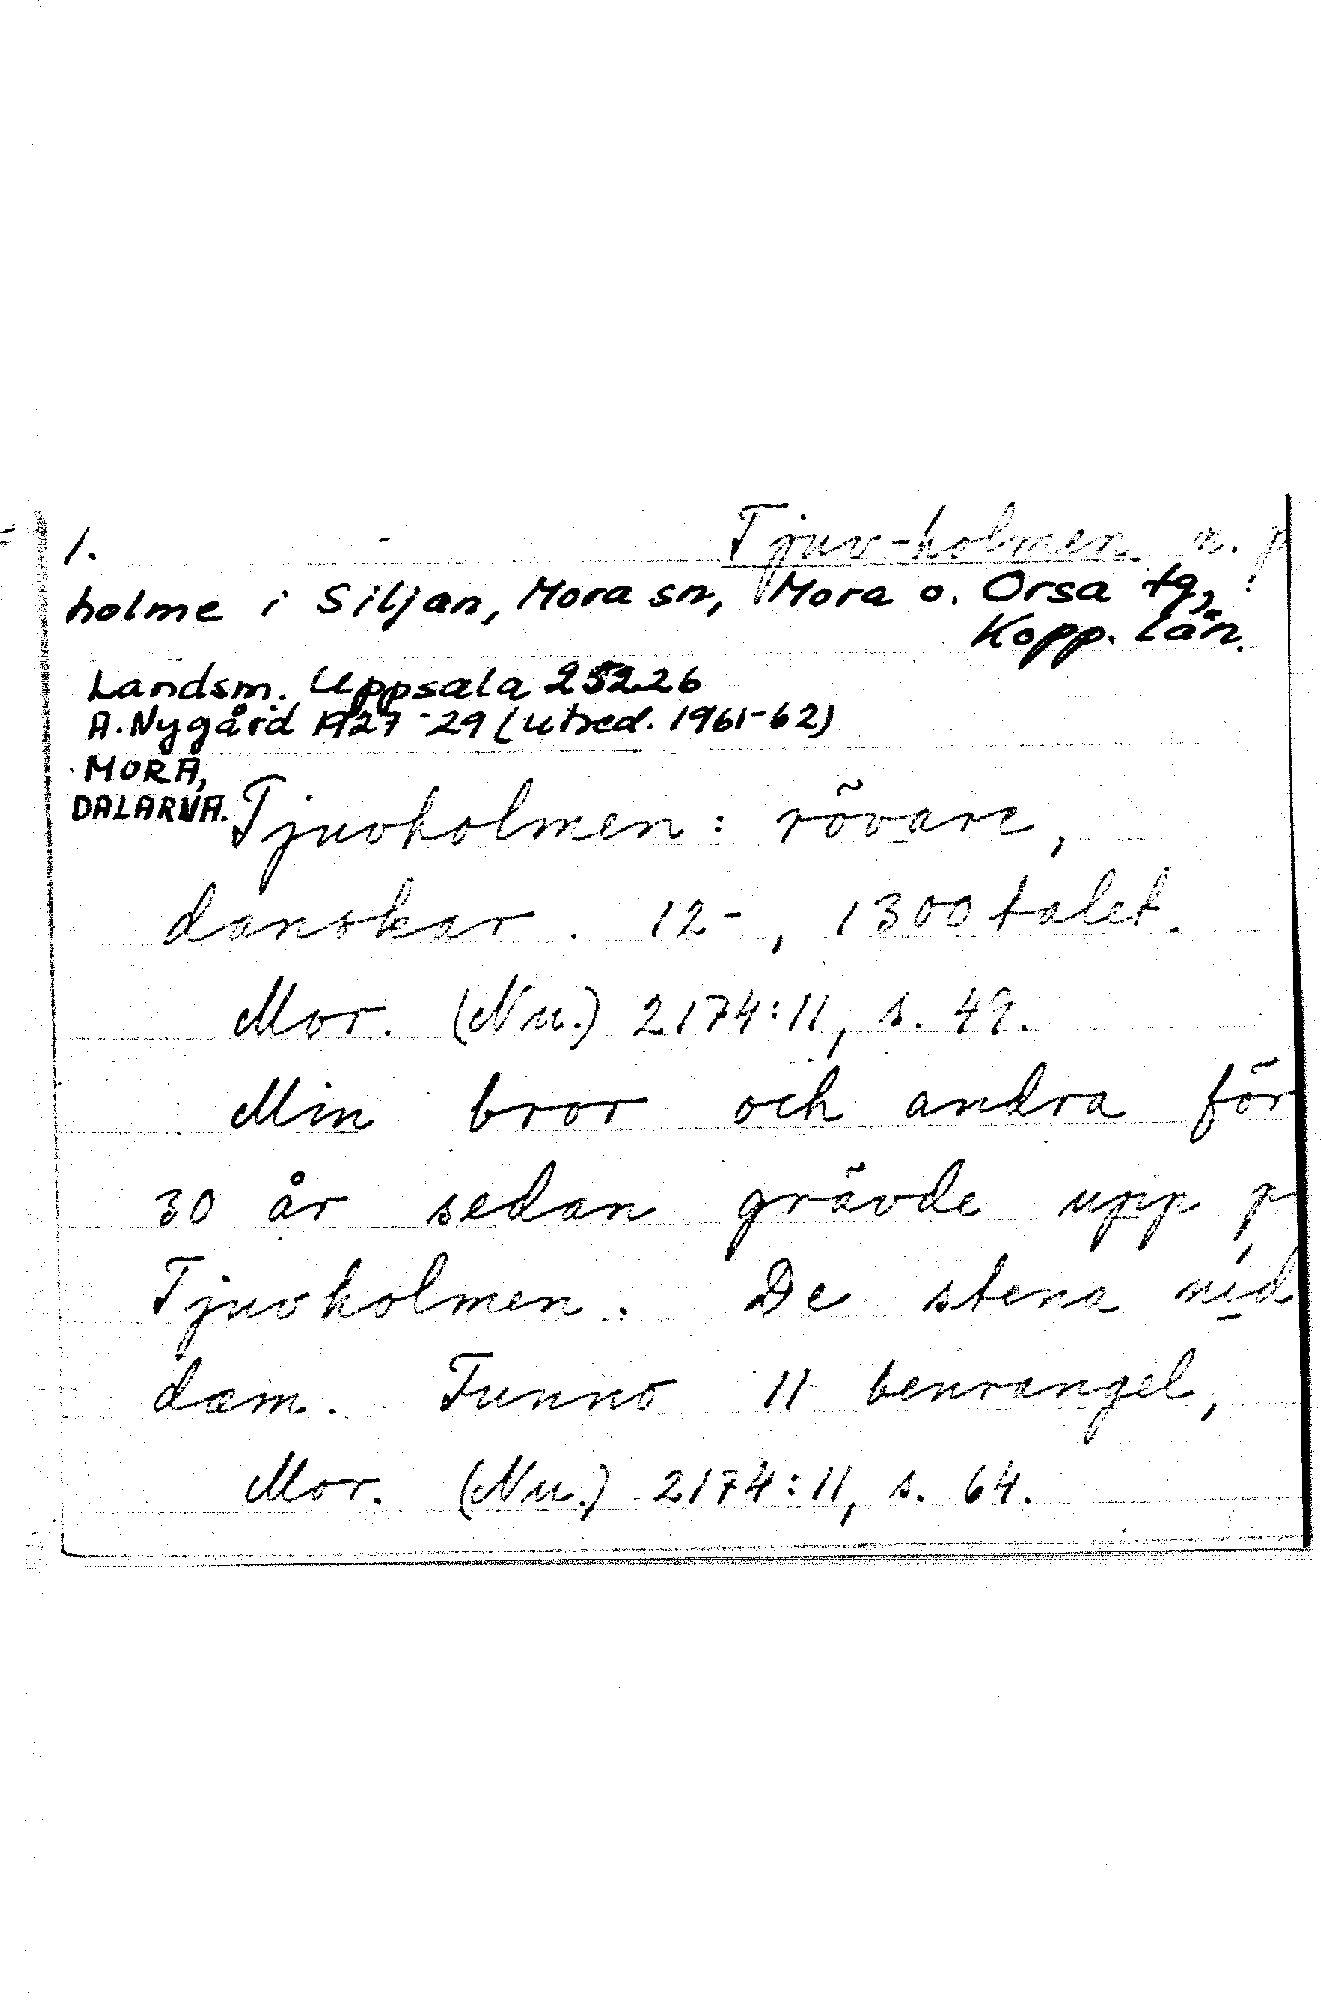 1. Tjuv-holmen n. p
holme i Siljan, Mora sn, Mora o. Orsa tg,
Kopp. län.
Landsm. Uppsala 25226
A. Nygård 1927-29 (utred. 1961-62)
MORA,
DALARNA.
Tjuvholmen: rövare,
danskar. 12-, 1300talet.
Mor. (Nu.) 2174:11, s. 49.
Min bror och andra för
30 år sedan grävde upp p
Tjuvholmen. De stena nid
dam. Funno 11 benrangel,
Mor. (Nu.) 2174:11, s. 64.